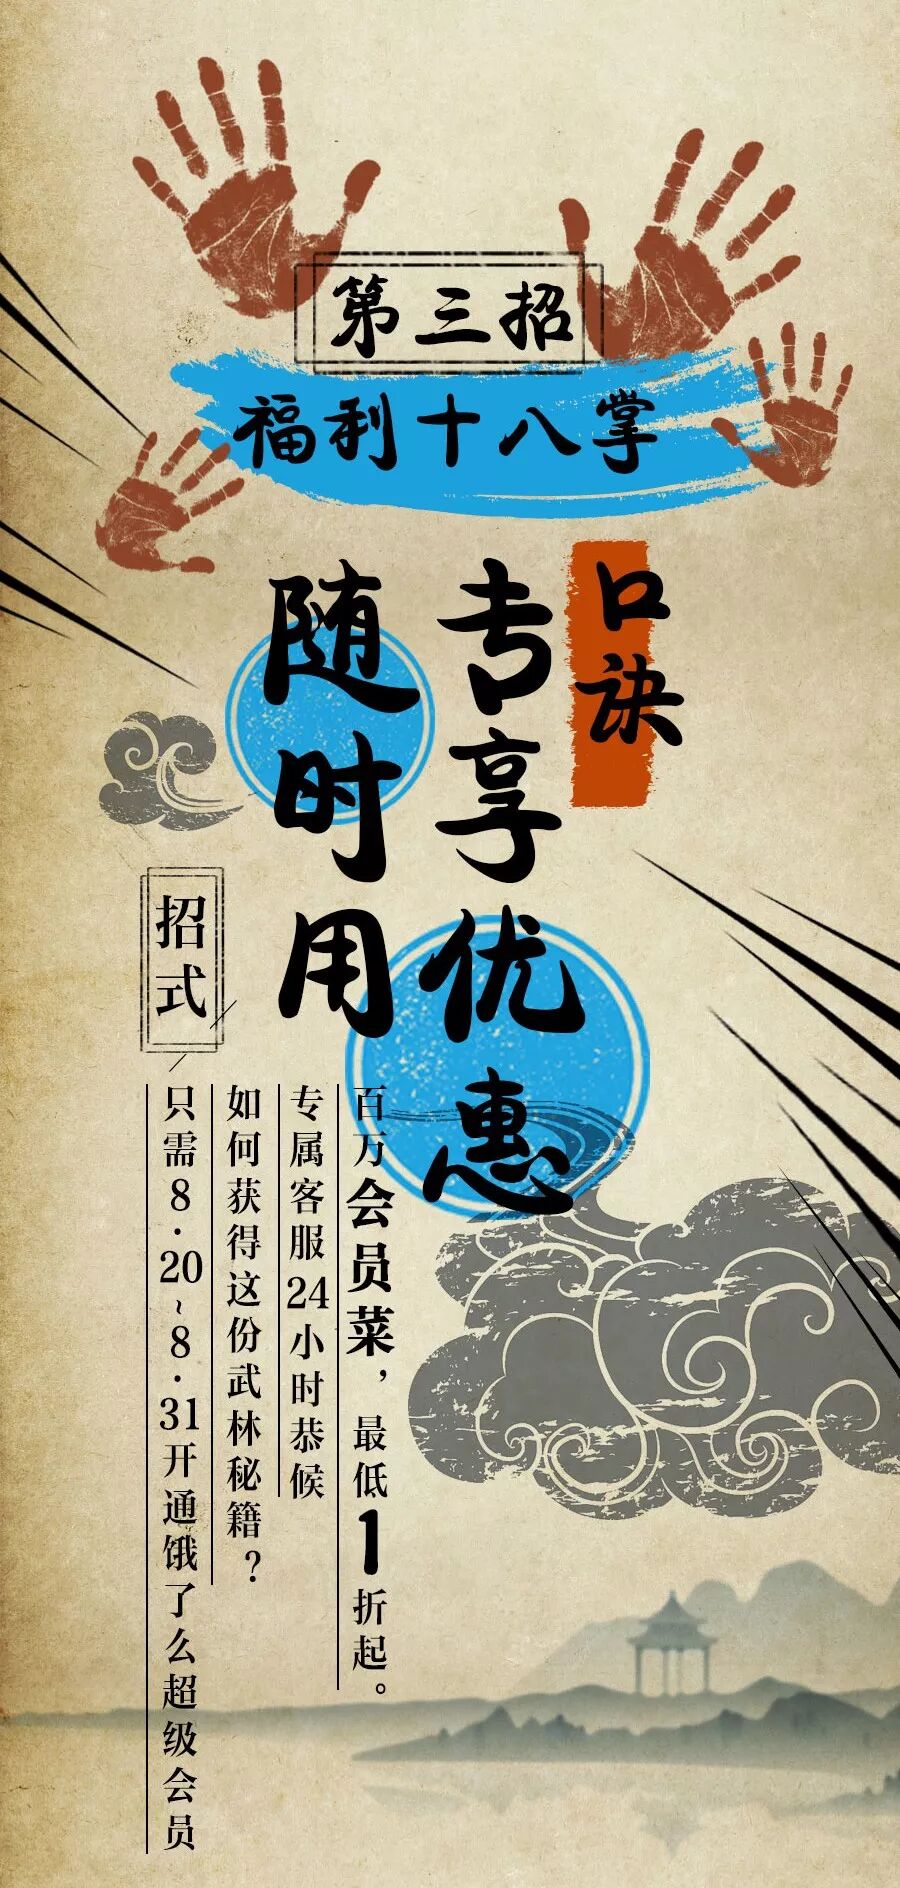 第三招
福利十八掌
口诀
专享优惠
随时用
招式
百万会员菜，最低1折起。
专属客服24小时恭候
如何获得这份武林秘籍？
只需8·20~8·31开通饿了么超级会员